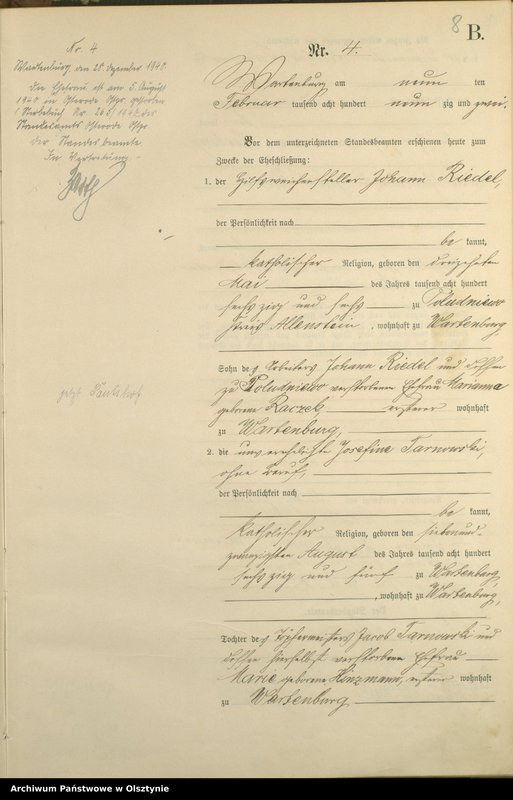 8
B.
Nr. 4.
Nr. 4
Wartenburg, den 28. Dezember 1940.
Die Ehefrau ist am 5. August
1940 in Osterode Ostpr. gestorben
(Sterbebuch Nr. 265/1940 des
Standesamts Osterode Ostpr.
Der Standesbeamte
In Vertretung
Wartenburg am neun ten
Februar tausend acht hundert neun zig und zwei.
Vor dem unterzeichneten Standesbeamten erschienen heute zum
Zwecke der Eheschließung:
1. der Hilfsweichensteller Johann Riedel,
der Persönlichkeit nach
be kannt,
katholischer Religion, geboren den dreizehnten
Mai des Jahres tausend acht hundert
sechszig und sechs zu Poludniewo
Kreis Allenstein, wohnhaft zu Wartenburg
Sohn des Arbeiters Johann Riedel und dessen
zu Poludniewo verstorbenen Ehefrau Marianna
geborene Raczek, ersterer wohnhaft
zu Wartenburg,
2. die unverehelichte Josefine Tarnowski,
ohne Beruf,
der Persönlichkeit nach
be kannt,
katholischer Religion, geboren den siebenund-
zwanzigsten August des Jahres tausend acht hundert
sechszig und fünf zu Wartenburg
, wohnhaft zu Wartenburg,
Tochter des Töpfermeisters Jacob Tarnowski und
dessen hierselbst verstorbenen Ehefrau
Marie geborene Hinzmann, ersterer wohnhaft
zu Wartenburg
Archiwum Państwowe w Olsztynie